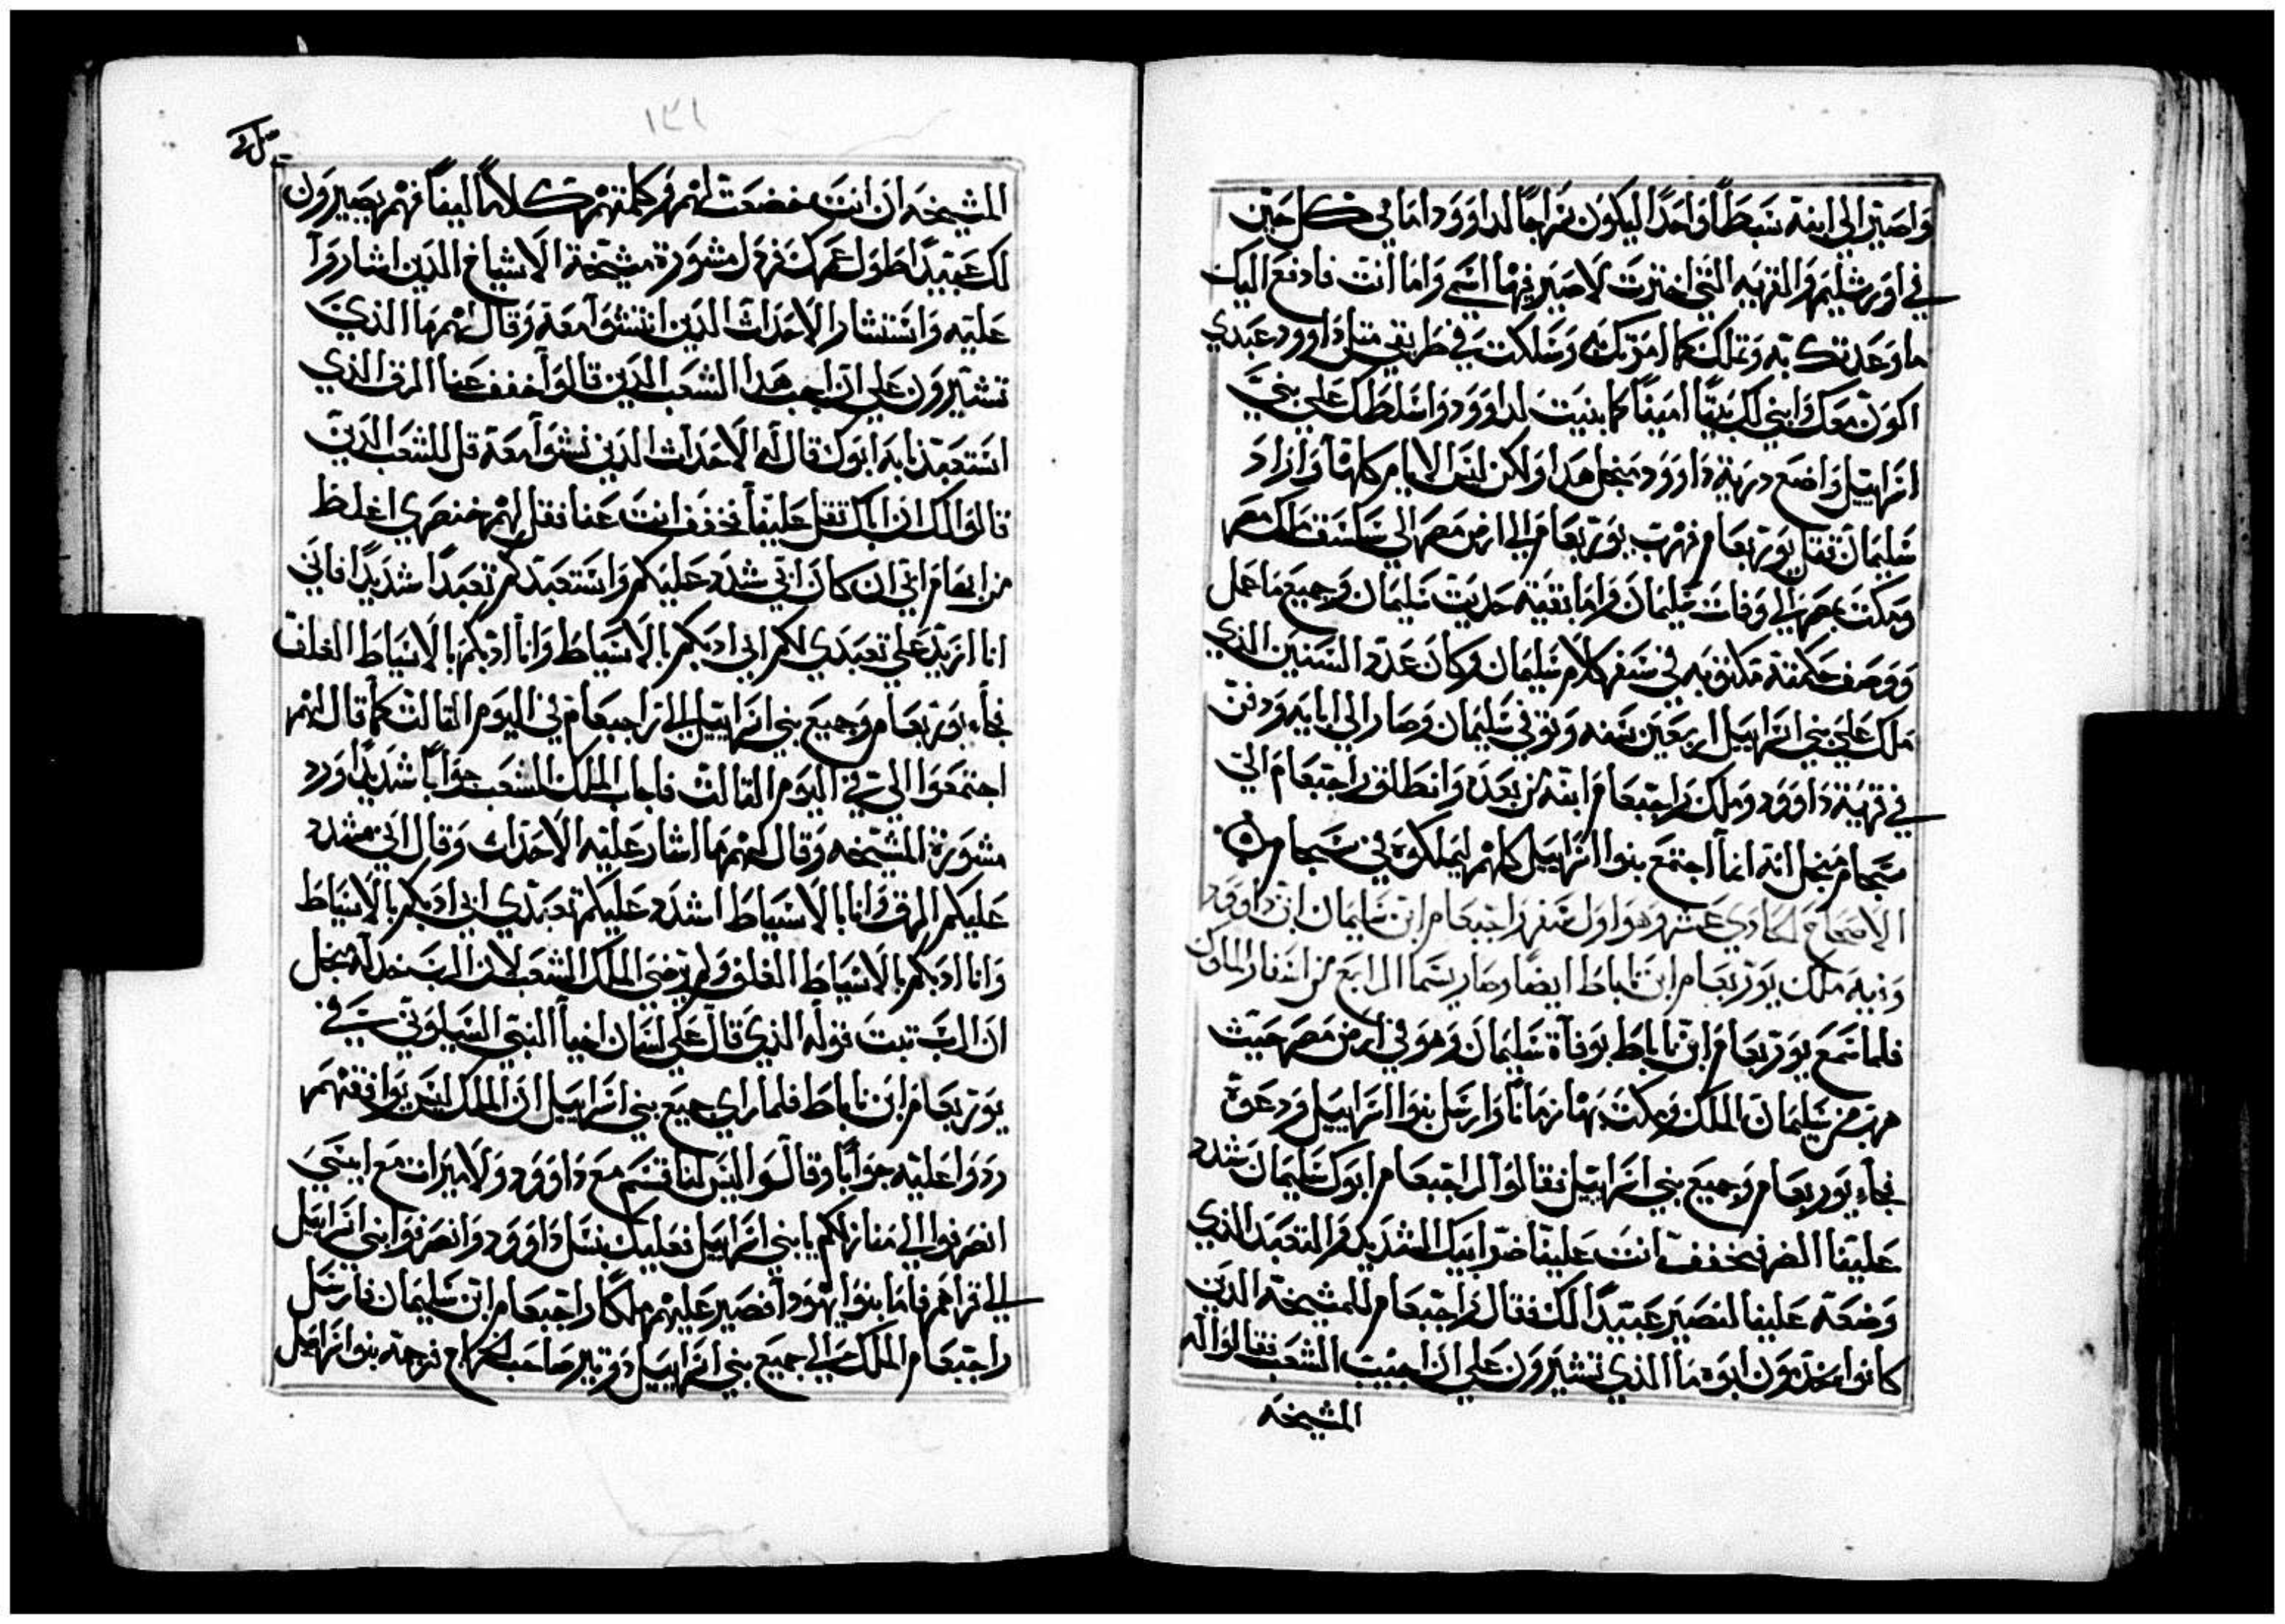 واصير الي ابنه سبطاً واحدًا ليكون سراجًا لداوود امامي في كل حين
في اورشليم والقريه التي اخترت لاصير فيها اسمي واما انت فادفع اليك
ما وعدتك به وتملك كما امرتك وسلكت في طريقي مثل داوود عبدي
اكون معك وابني لك بيتًا امينًا كما بنيت لداوود واسلطك علي بني
اسراييل واضع درية داوود منجل هدا ولكن ليس الايام كلها واراد
سليمان فقتل يوربعام فهرب يوربعام الي ارض مصر الي ساسق ملك مصر
ومكت بمصر الي وفات سليمان واما بقية حديت سليمان وجميع ما عمل
ووصف حكمته مكتوبه في سفر كلام سليمان وكان عدد السنين الذي
ملك علي بني اسراييل اربعين سنه وتوفي سليمان وصار الي ابايه ودفن
في قرية داوود وملك راجبعام ابنه من بعده وانطلق راجبعام الي
سجام منجل انه انما اجتمع بنوا اسراييل كلهم ليملكوه في سجام
الاصحاح الحادي عشر وهو اول سفر راجبعام ابن سليمان ابن داوود
وفيه ملك يوربعام ابن ناباط ايضا وصار يسما الرابع من اسفار الملوك
فلما سمع يوربعام ابن ناباط بوفاة سليمان وهو في ارض مصر حيث
هرب من سليمان الملك ومكت بها زمانًا وارسل بنوا اسراييل ودعوه
فجاء يوربعام وجميع بني اسراييل فقالوا لراجبعام ابوك سليمان شدد
علينا الضر فخفف انت علينا ضر ابيك الشديد والتعبد الذي
وضعه علينا لنصير عبيدًا لك فقال راجبعام للمشيخة الدين
كانوا يخدمون ابوه ما الذي تشيرون علي ان اجيب الشعب فقالوا له
المشيخه
١٢١
المشيخه ان انت خضعت لهم وكلمتهم كلامًا لينًا فهم يصيرون
لك عبيدًا طول عمرك فرذل مشورة مشيخة الاشياخ الدين اشاروا
عليه واستشار الاحداث الدين انتشوا معه وقال لهم ما الذي
تشيرون علي ان اجيب هدا الشعب الدين قالوا خفف عنا الرق الذي
استعبدنا به ابوك قال له الاحداث الدين نشوا معه قل للشعب الدين
قالوا لك ان اباك تقل علينا فخفف انت عنا فقل لهم خنصري اغلظ
من ابهام ابي ان كان ابي شدد عليكم واستعبدكم تعبدًا شديدًا فاني
انا ازيد علي تعبدي لكم ابي ادبكم بالاسياط وانا ادبكم بالاسياط الغلف
فجاء يوربعام وجميع بني اسراييل الي راجبعام في اليوم التالت كما قال لهم
اجتمعوا الي في اليوم التالت فاجاب الملك للشعب جوابًا شديدًا ورد
مشورة المشيخه وقال لهم ما اشار عليه الاحداث وقال ابي شدد
عليكم الرق وانا بالاسياط اشدد عليكم تعبدي ابي ادبكم بالاسياط
وانا ادبكم بالاسياط الغلف ولم يرضي الملك الشعب لان الرب خدله منجل
ان الرب تبت قوله الذي قال علي لسان اخيا النبي السيلوني في
يوربعام ابن ناباط فلما راي جميع بني اسراييل ان الملك ليس يوافقهم
ردوا عليه جوابًا وقالوا ليس لنا قسم مع داوود ولا ميرات مع ابن يسي
انصرفوا الي منازلكم يا بني اسراييل فعليك بنسل داوود وانصرفوا بني اسراييل
الي قراهم فاما بنوا يهودا فصير عليهم ملكًا راجبعام ابن سليمان فارسل
راجبعام الملك الي جميع بني اسراييل دونير صاحب الخراج فرجمه بنوا اسراييل